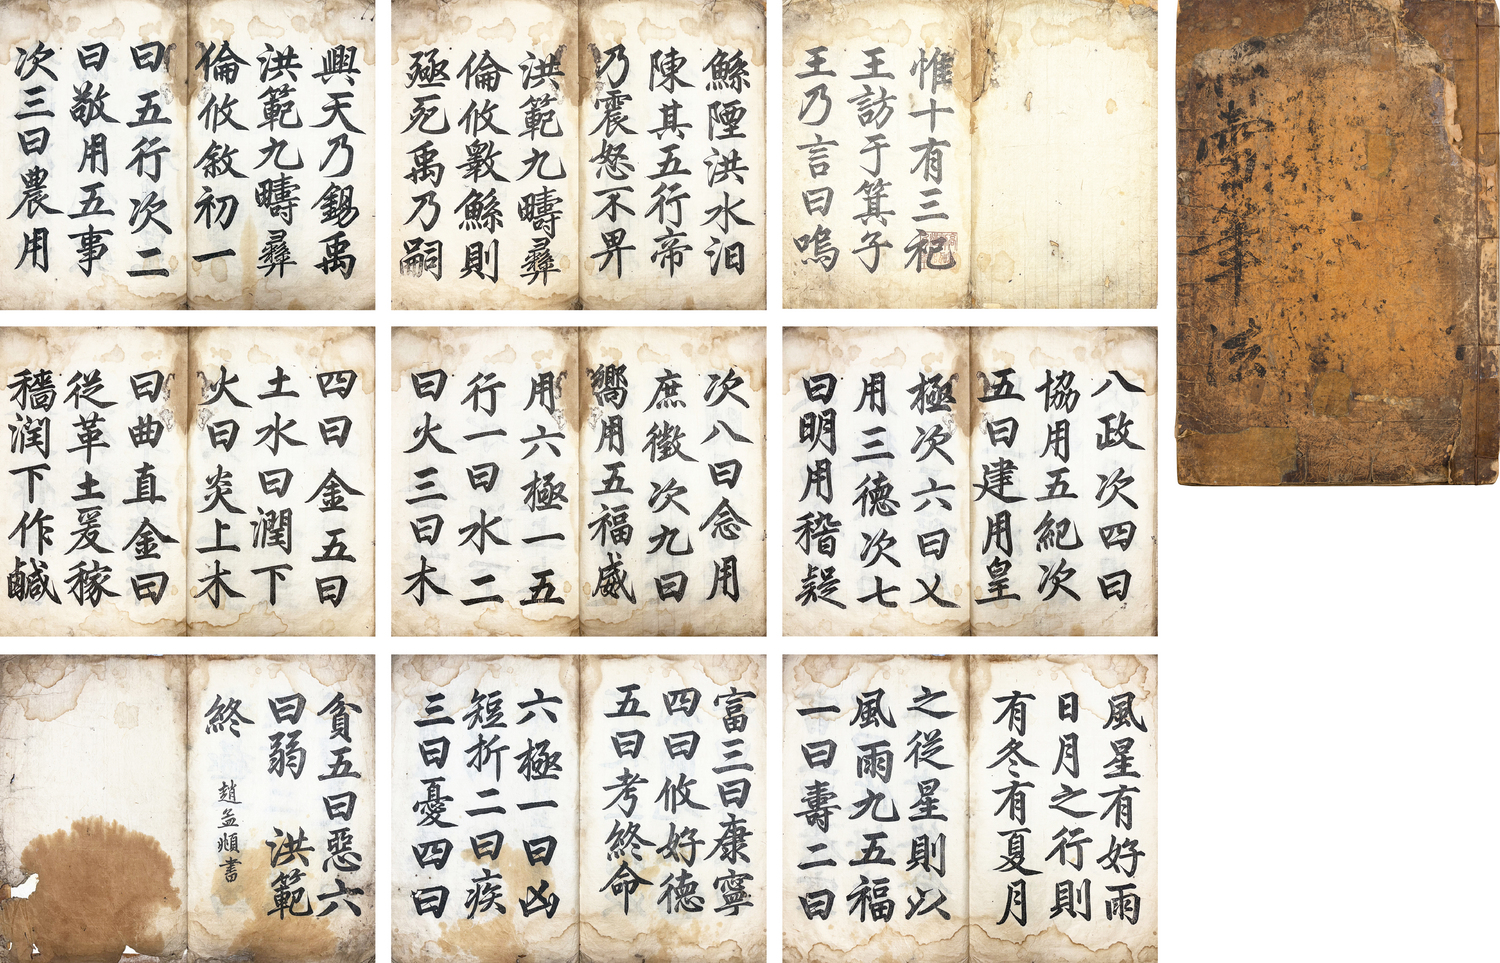 惟十有三祀
王訪于箕子
王乃言曰嗚
鯀陻洪水汨
陳其五行帝
乃震怒不畀
洪範九疇彝
倫攸斁鯀則
殛死禹乃嗣
興天乃錫禹
洪範九疇彝
倫攸敘初一
曰五行次二
曰敬用五事
次三曰農用
八政次四曰
協用五紀次
五曰建用皇
極次六曰乂
用三徳次七
曰明用稽疑
次八曰念用
庶徵次九曰
嚮用五福威
用六極一五
行一曰水二
曰火三曰木
四曰金五曰
土水曰潤下
火曰炎上木
曰曲直金曰
従革土爰稼
穡潤下作鹹
風星有好雨
日月之行則
有冬有夏月
之従星則以
風雨九五福
一曰壽二曰
富三曰康寧
四曰攸好徳
五曰考終命
六極一曰凶
短折二曰疾
三曰憂四曰
貧五曰惡六
曰弱 洪範
終
趙孟頫書